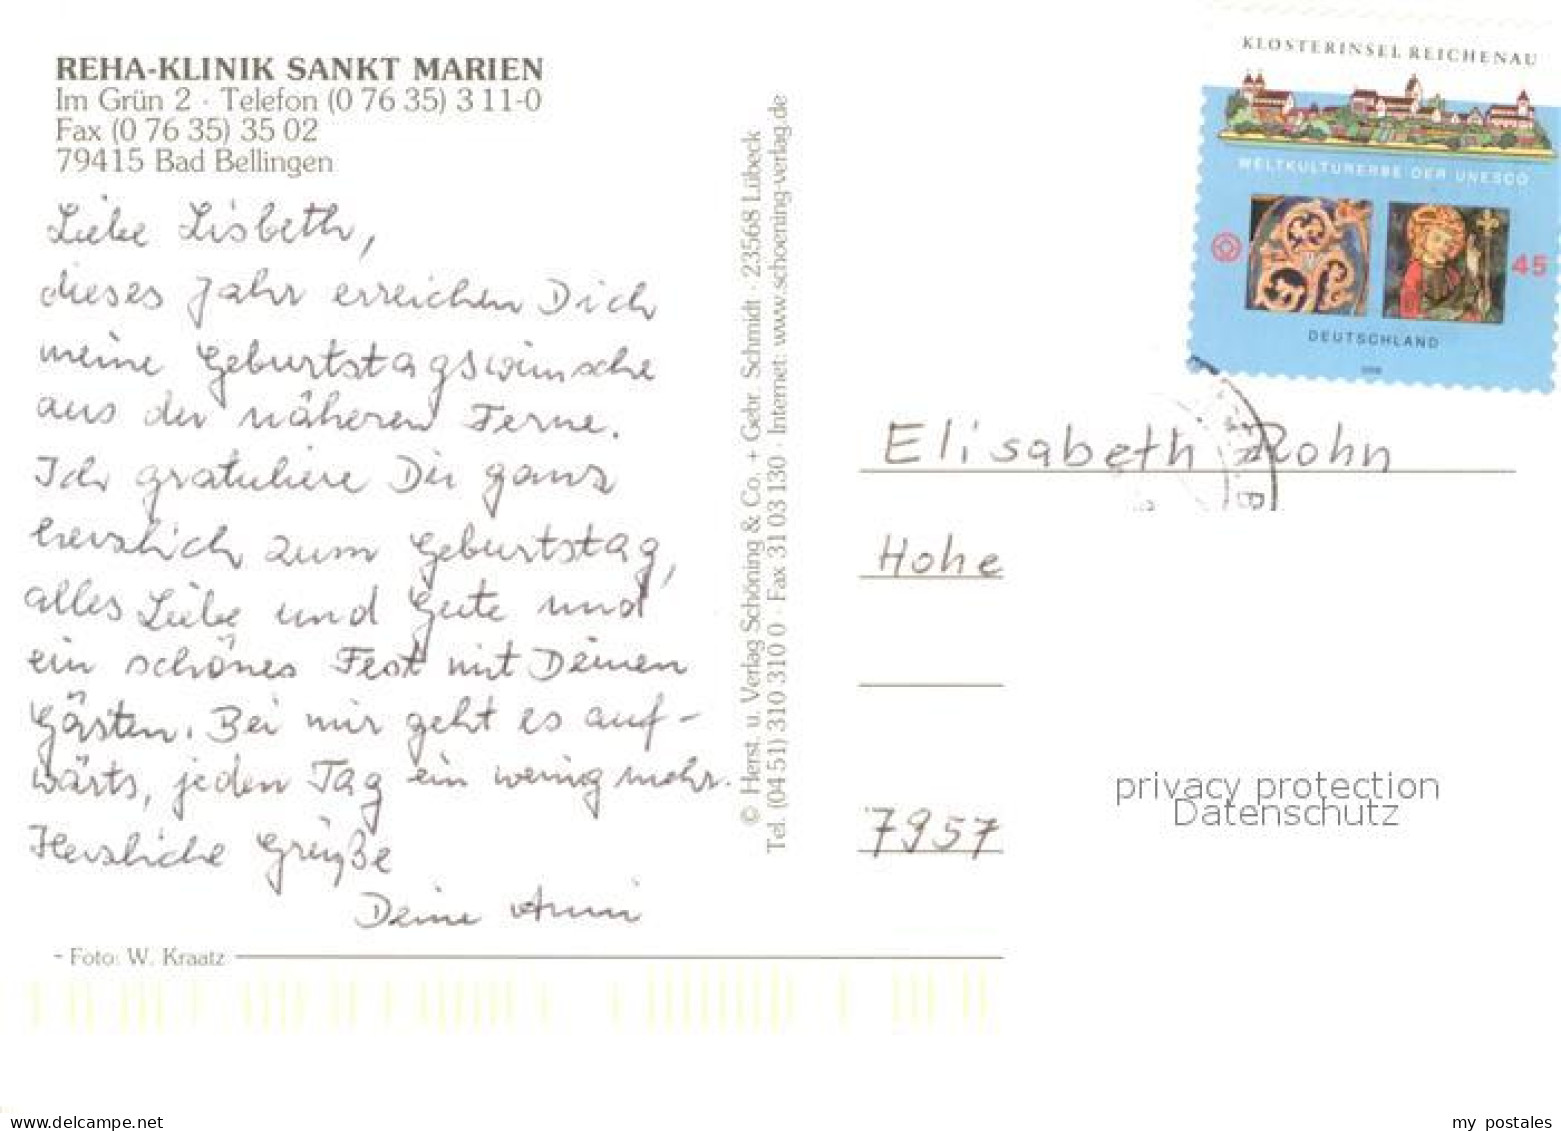 REHA-KLINIK SANKT MARIEN
Im Grün 2 · Telefon (0 76 35) 3 11-0
Fax (0 76 35) 35 02
79415 Bad Bellingen
Liebe Lisbeth,
dieses Jahr erreichen Dich
meine Geburtstagswünsche
aus der näheren Ferne.
Ich gratuliere Dir ganz
herzlich zum Geburtstag,
alles Liebe und Gute und
ein schönes Fest mit Deinen
Gästen. Bei mir geht es auf-
wärts, jeden Tag ein wenig mehr.
Herzliche Grüße
Deine Anni
- Foto: W. Kraatz
© Herst. u. Verlag Schöning & Co. + Gebr. Schmidt · 23568 Lübeck
Tel. (04 51) 310 310 0 · Fax 31 03 130 · Internet: www.schoening-verlag.de
KLOSTERINSEL REICHENAU
WELTKULTURERBE DER UNESCO
45
DEUTSCHLAND
Elisabeth Rohn
Hohe
7957
privacy protection
Datenschutz
www.delcampe.net
my postales